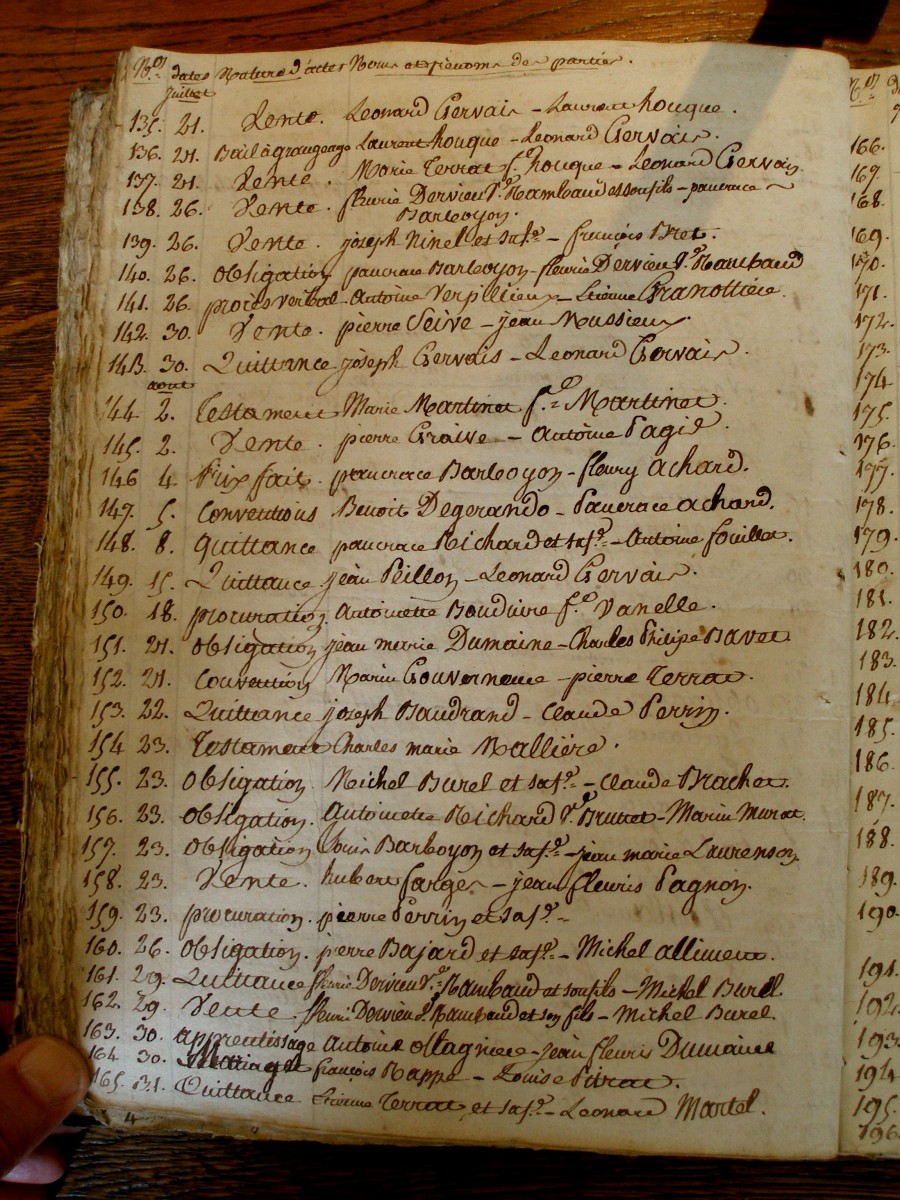 Nos dates Nature d'actes Noms et prenoms des parties.
Juillet
135. 21. Vente. Leonard Gervais - Laurent houque.
136. 21. Bail à grangeage Laurent houque - Leonard Gervais.
137. 21. Vente. Marie Terrat fe houque - Leonard Gervais
138. 26. Vente. fleurie Dervieu Ve Rambaud et son fils - pancrace
Barboyon.
139. 26. Vente. joseph Ninel et sa fe - françois Bret.
140. 26. obligation pancrace Barboyon - fleurie Dervieu Ve Rambaud
141. 26. procès verbal antoine Verpillieux - Etienne Granottiere.
142. 30. Vente. pierre Seive - jean Mussieux.
143. 30. Quittance joseph Gervais - Leonard Gervais.
aout
144 2. Testament Marie Martinet fe = Martinet.
145. 2. Vente. pierre Graive - Antoine Pagis.
146 4. Prix fait. pancrace Barboyon - fleury achard.
147. 5. Conventions Benoit Degerando - Pancrace achard.
148. 8. Quittance pancrace Richard et sa fe - Antoine fouillat.
149. 15. Quittance jean Peillon - Leonard Gervais.
150. 18. procuration. Antoinette Bouduire fe Vanelle.
151. 21. obligation jean marie Dumaine - Charles Philipe Bavet
152. 21. Convention Marin Gouvernome - pierre Terrat.
153. 22. Quittance joseph Baudrand - Claude Perrin.
154 23. Testament Charles marie Mallière.
155. 23. obligation. Michel Burel et sa fe - Claude Brachet.
156. 23. obligation. Antoinette Richard Ve Bruttet - Marin Murat.
157. 23. obligation Louis Barboyon et sa fe - jean marie Laurenson
158. 23. Vente. hubert farges - jean fleuris Pagnon.
159. 23. procuration. pierre Perrin et sa fe -
160. 26. obligation. pierre Bajard et sa fe - Michel allimeux.
161. 29. Quittance fleurie Dervieu Ve Rambaud et son fils - Michel Burel
162. 29. Vente fleurie Dervieu Ve Rambaud et son fils - Michel Burel.
163. 30. apprentissage Antoine ollagniere - jean fleuris Dumaine
164 30. Mariage françois Rappe - Louise Pitrat.
165. 31. Quittance Etienne Terrat et sa fe - Leonard Martel.
4
Nos
166.
167.
168.
169.
170.
171.
172.
173.
174
175.
176.
177.
178.
179.
180.
181.
182.
183.
184
185.
186.
187.
188.
189.
190.
191.
192.
193.
194
195.
196.